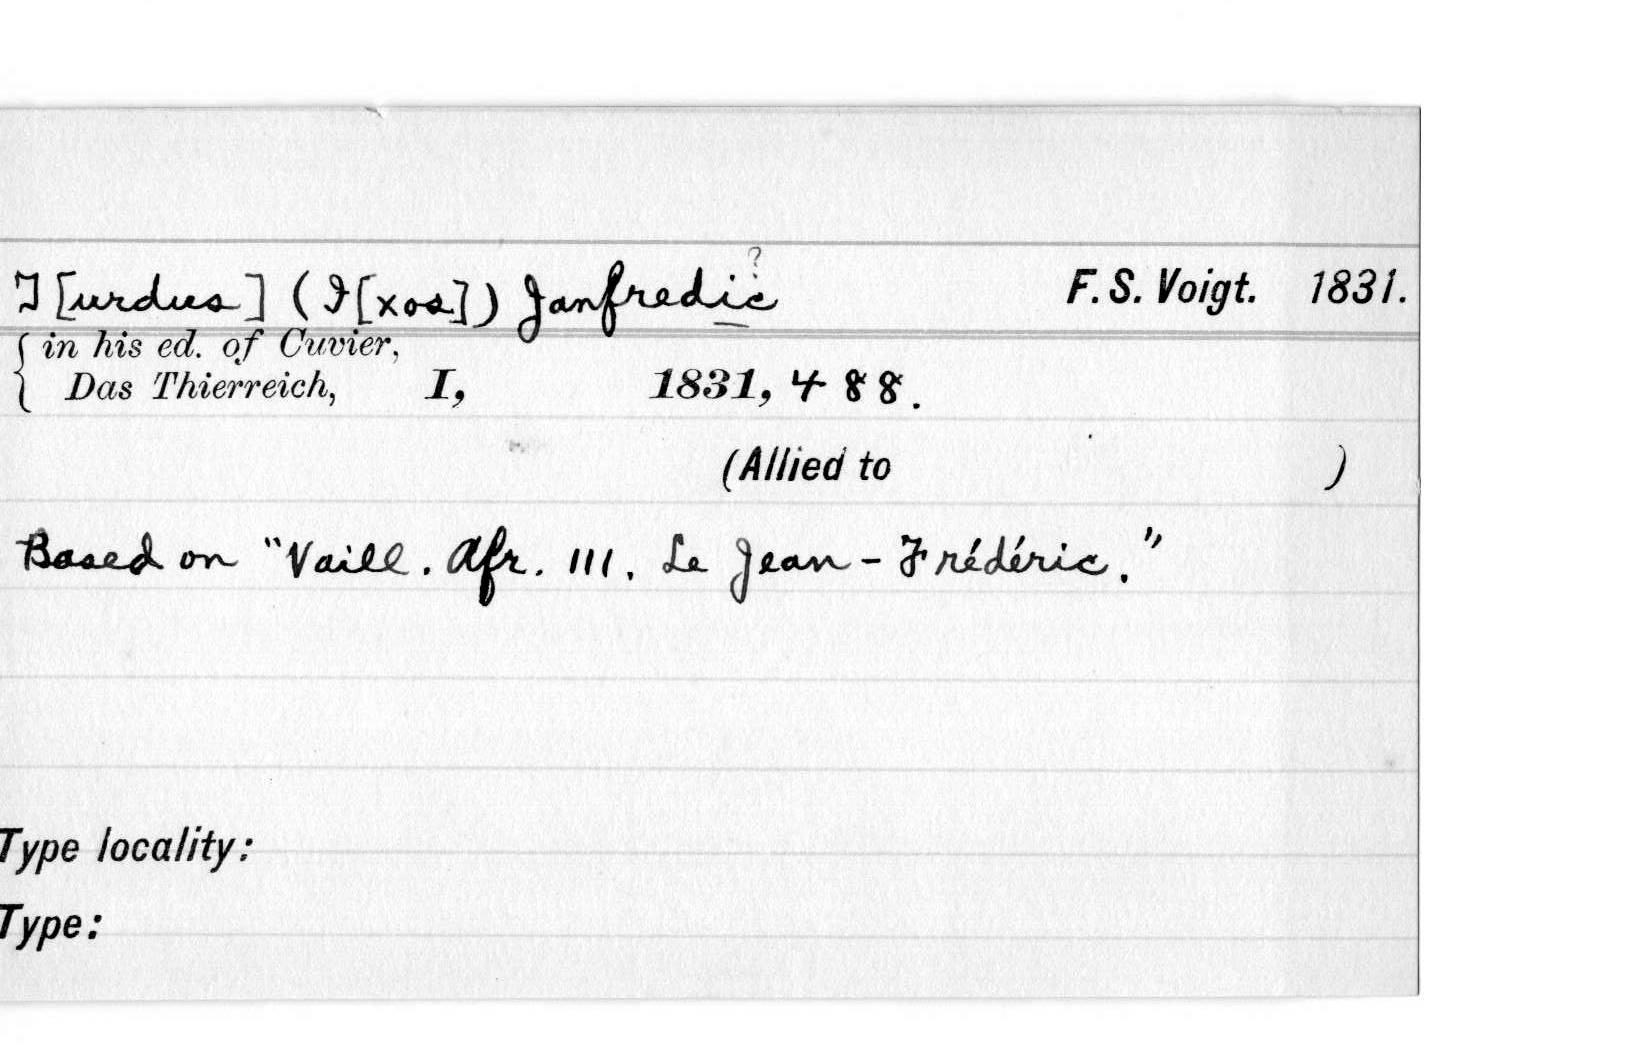 T[urdus] (I[xos]) Janfredic ? F. S. Voigt. 1831.
{ in his ed. of Cuvier,
Das Thierreich, I, 1831, 488.
(Allied to )
Based on "Vaill. Afr. III. Le Jean-Frédéric."
Type locality:
Type: